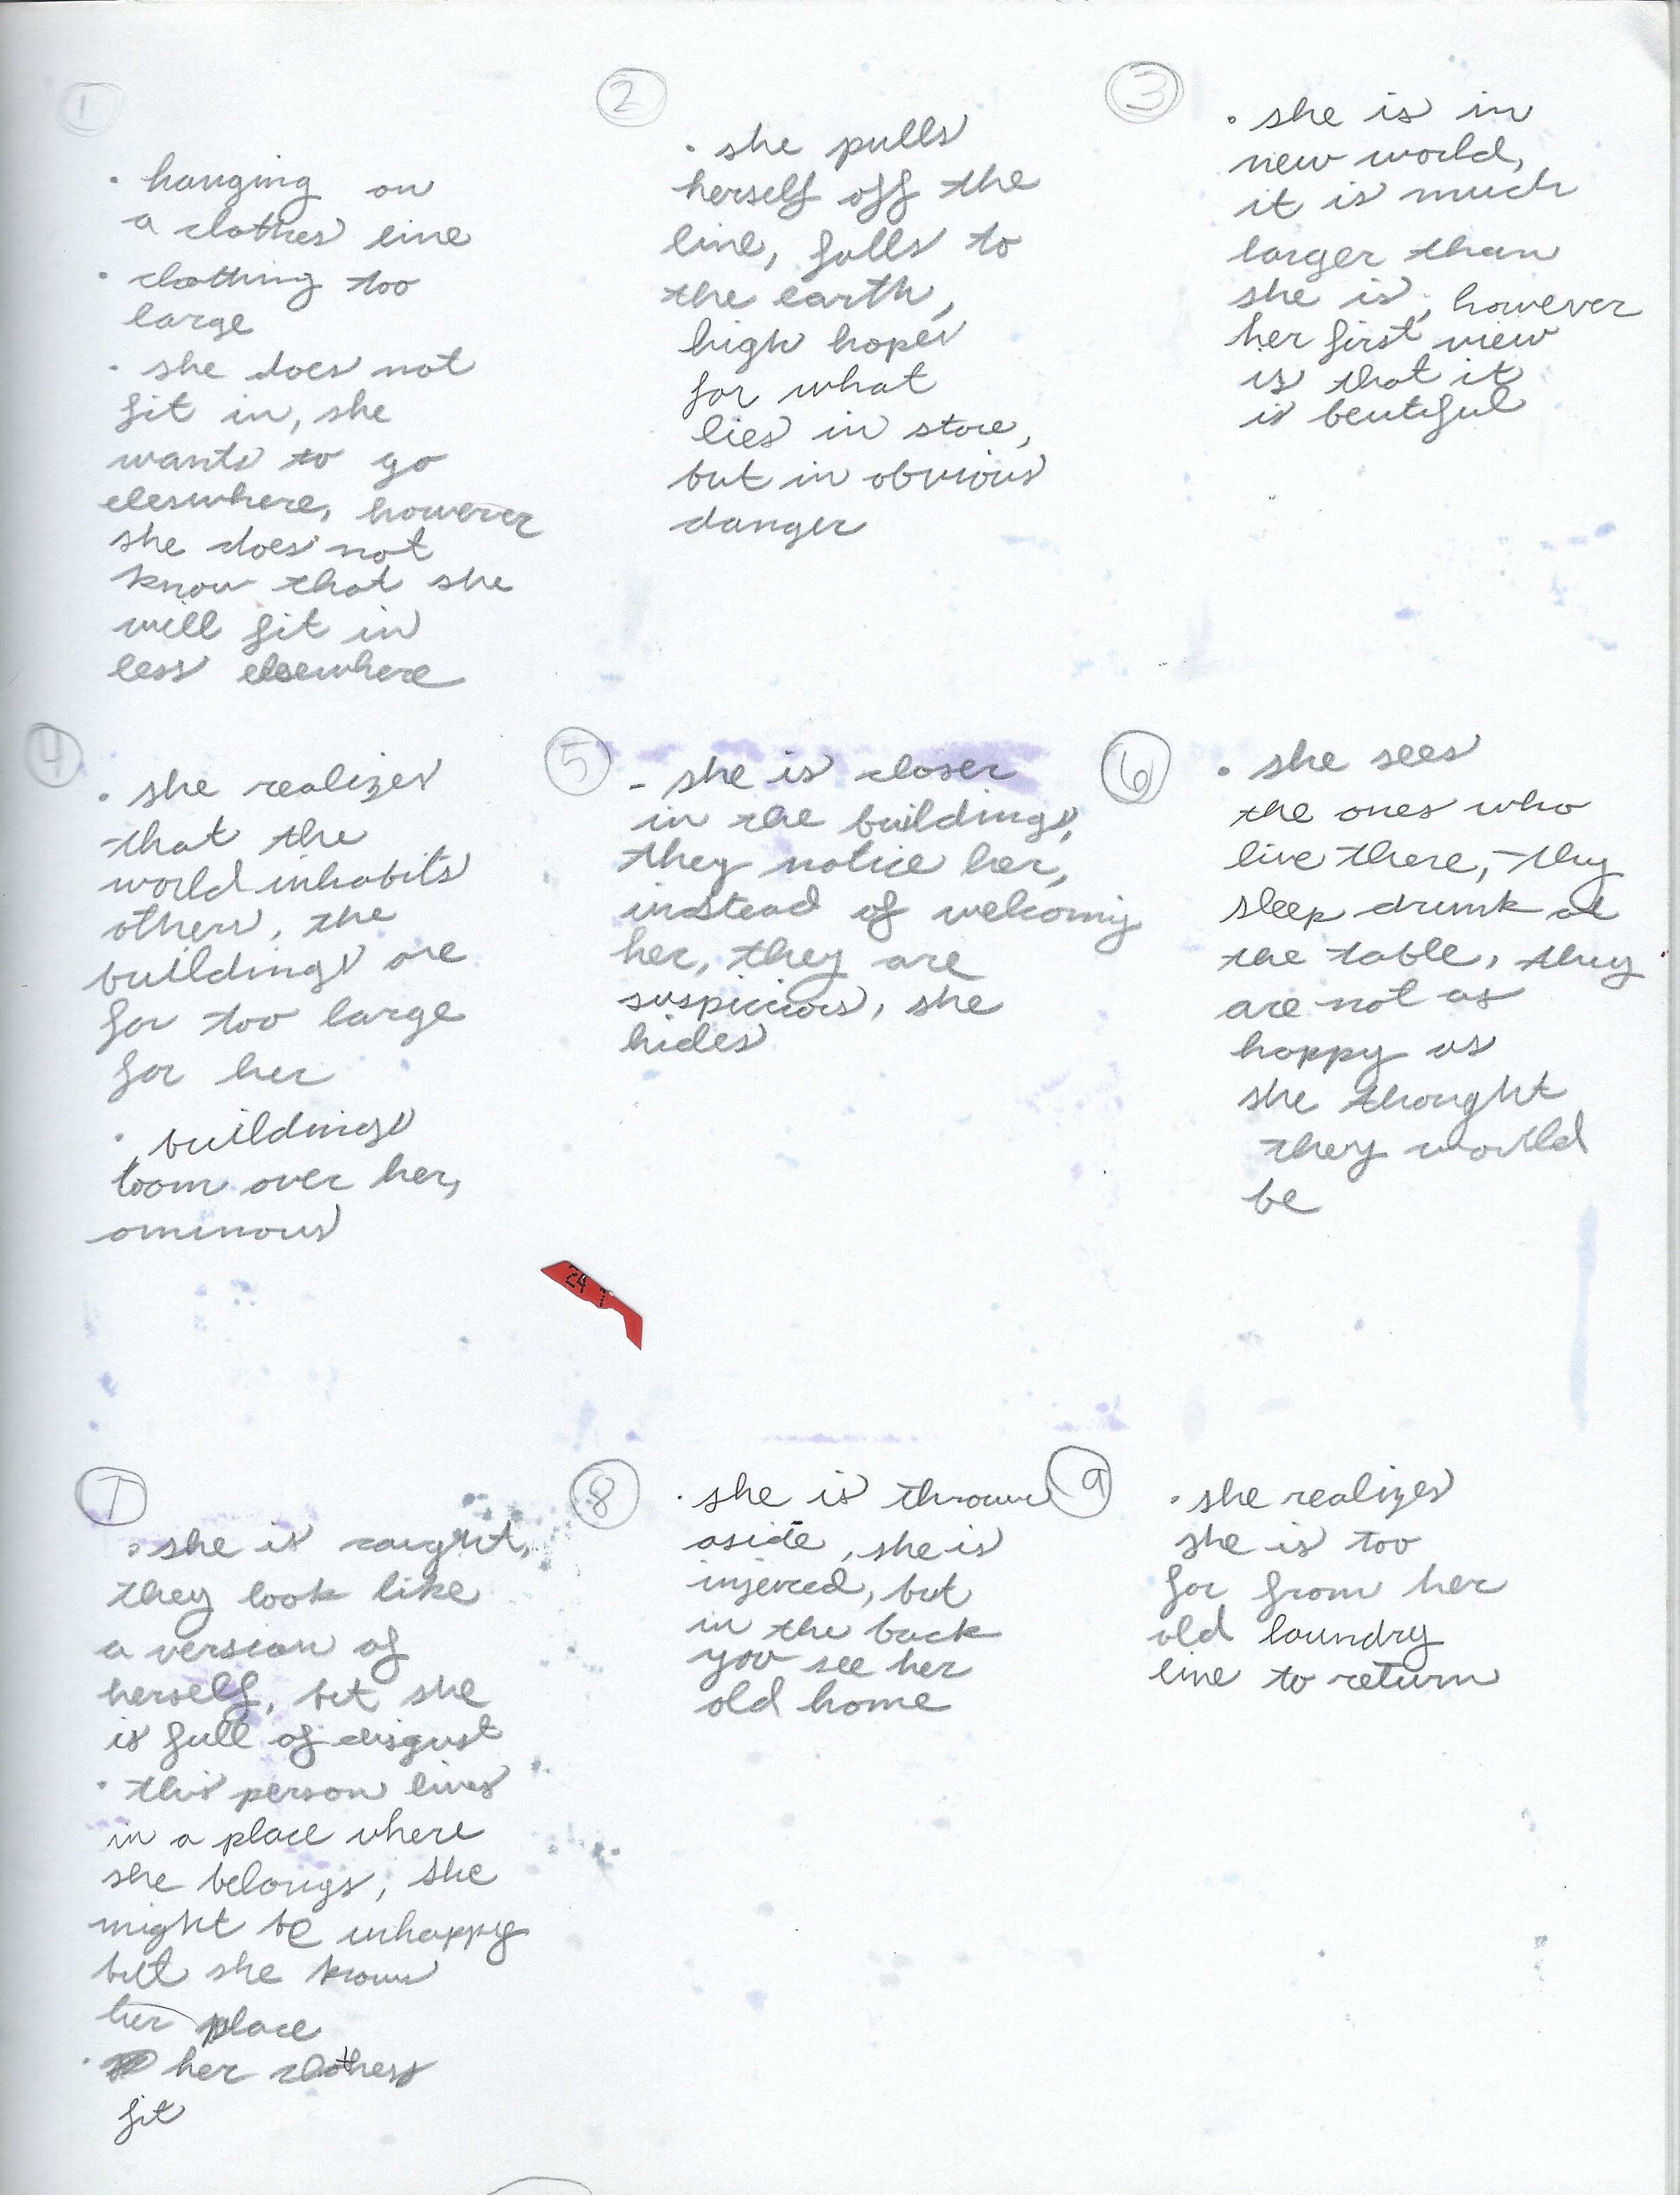 1
• hanging on
a clothes line
• clothing too
large
• she does not
fit in, she
wants to go
elsewhere, however
she does not
know that she
will fit in
less elsewhere
2
• she pulls
herself off the
line, falls to
the earth,
high hopes
for what
lies in store,
but in obvious
danger
3
• she is in
new world,
it is much
larger than
she is, however
her first view
is that it
is beutiful
4
• she realizes
that the
world inhabits
others, the
buildings are
far too large
for her
• buildings
loom over her,
ominous
5
- she is closer
in the buildings,
they notice her,
instead of welcoming
her, they are
suspicious, she
hides
6
• she sees
the ones who
live there, they
sleep drunk at
the table, they
are not as
happy as
she thought
they would
be
24 7
7
• she is caught,
they look like
a version of
herself, but she
is full of disgust
• this person lives
in a place where
she belongs, she
might be unhappy
but she knows
her place
• her clothes
fit
8
• she is thrown
aside, she is
injered, but
in the back
you see her
old home
9
• she realizes
she is too
far from her
old laundry
line to return